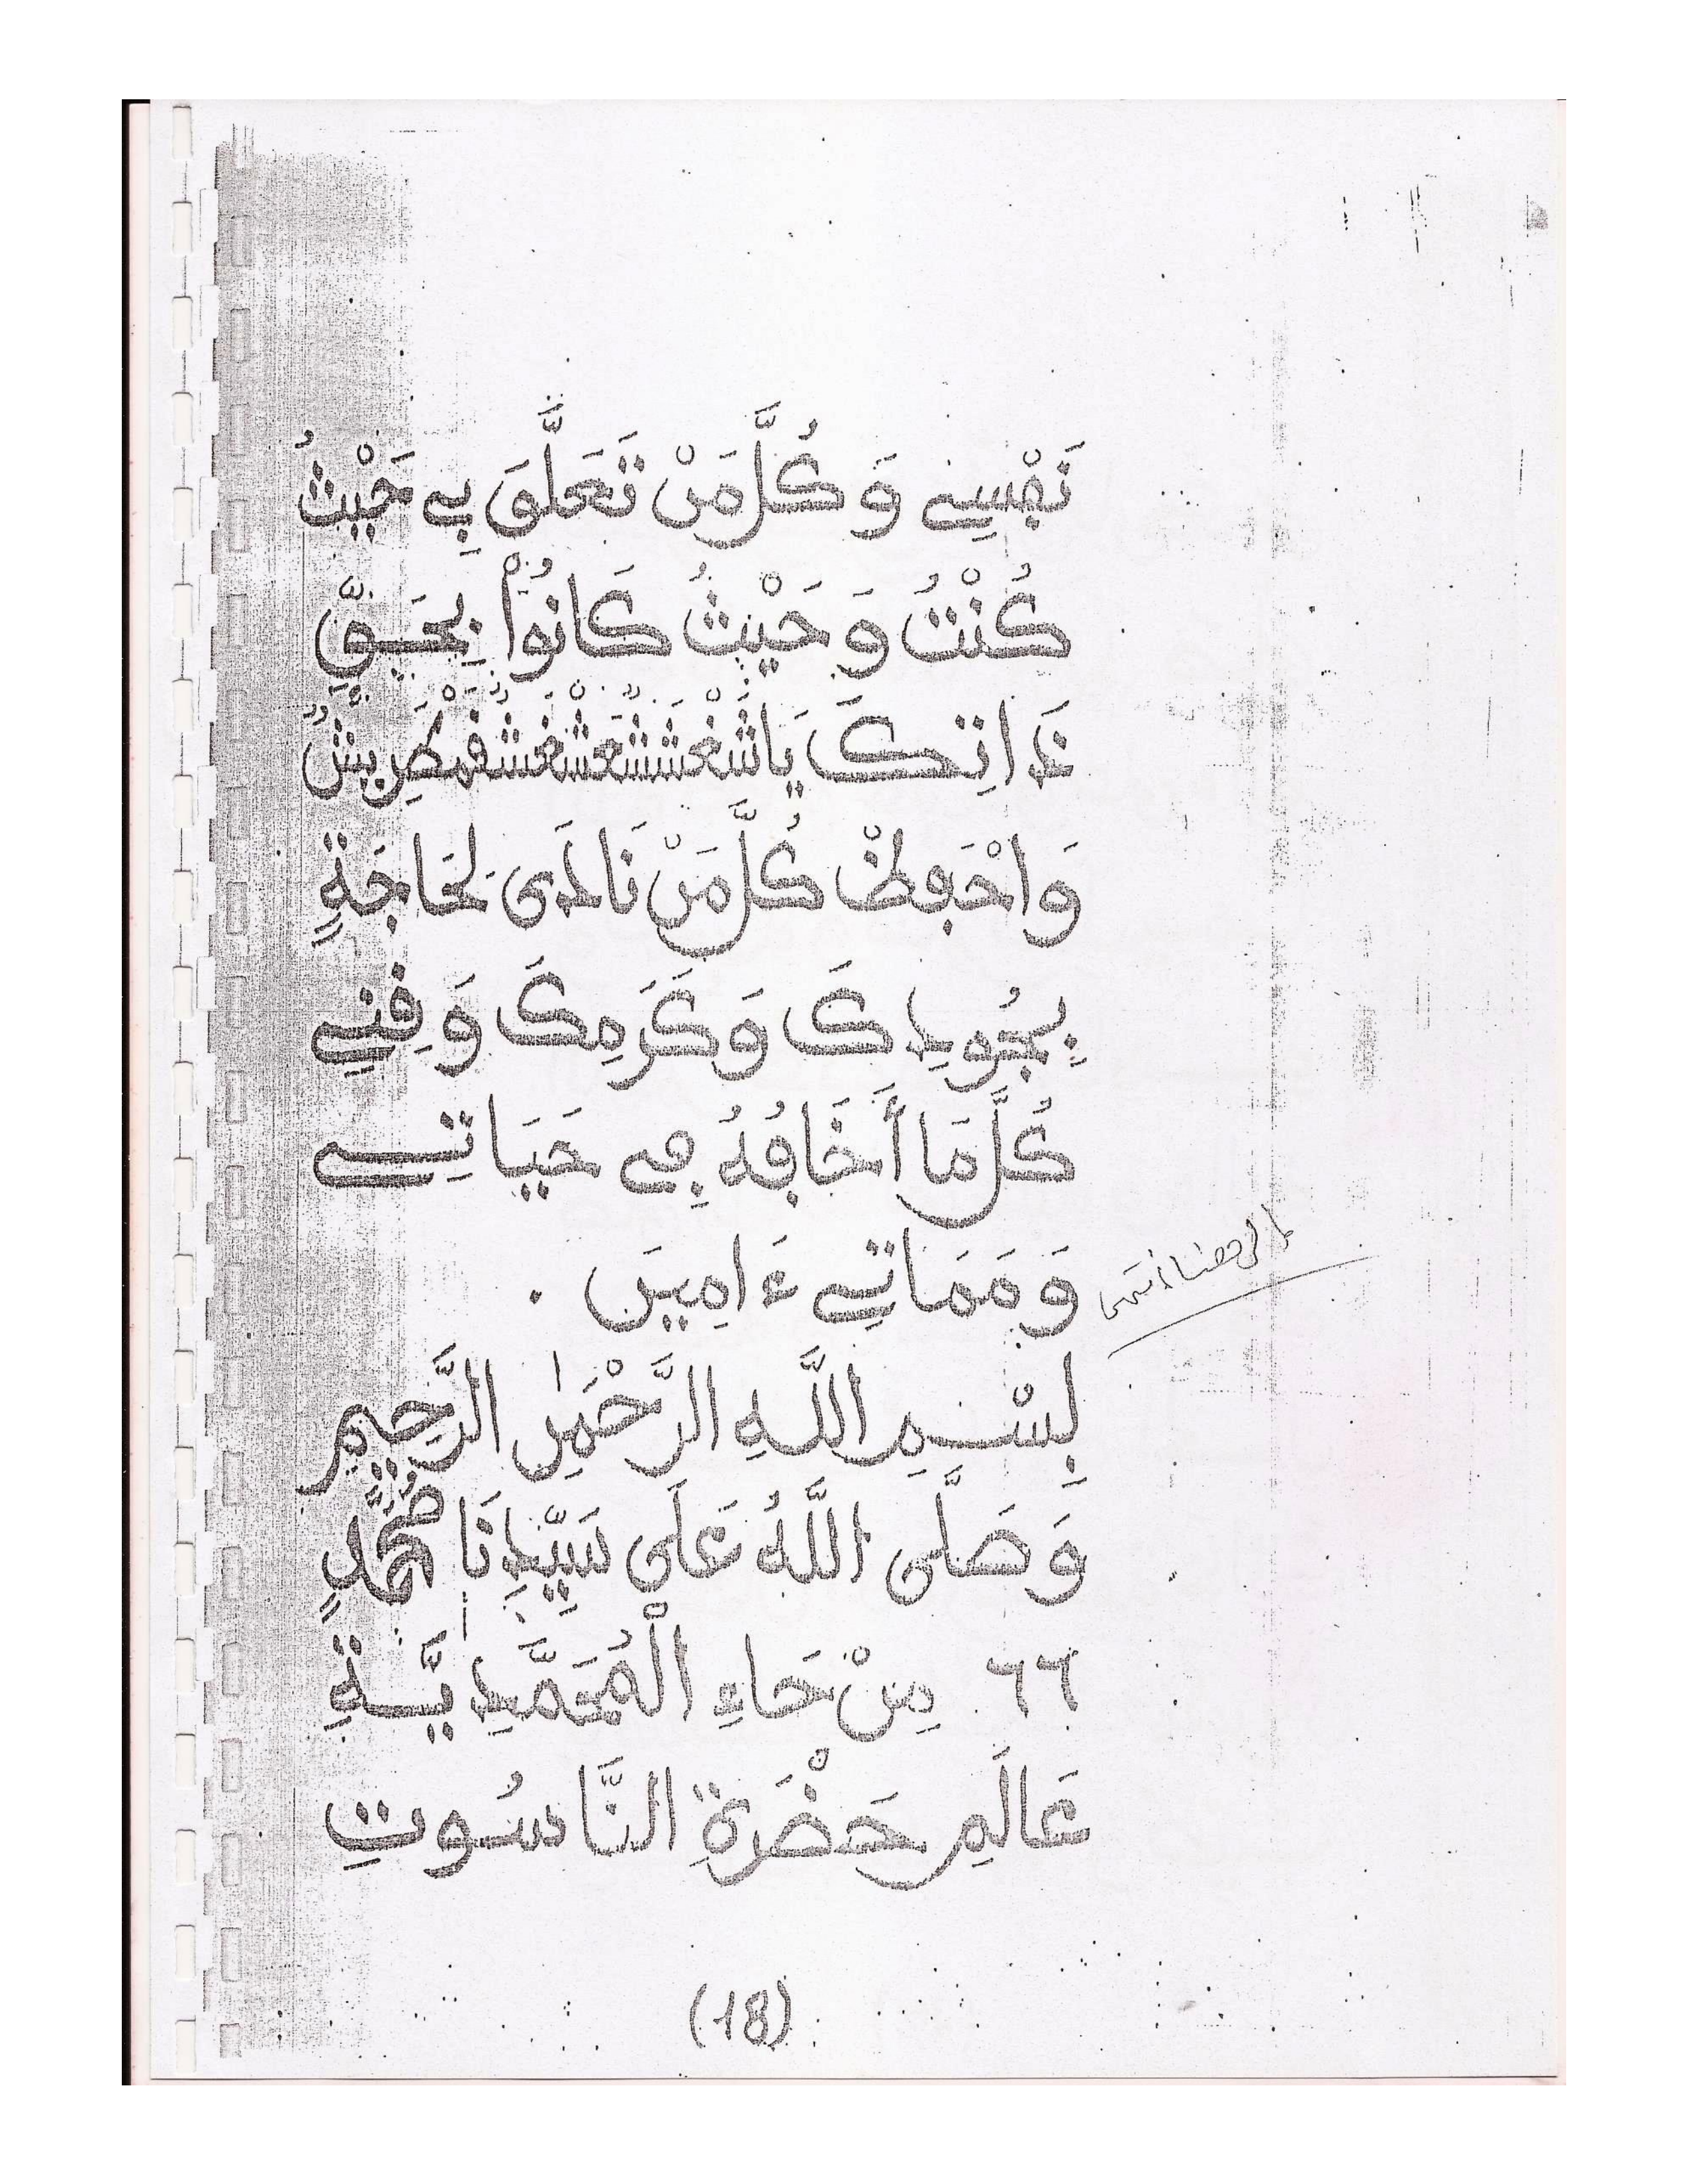 نَفْسِي وَكُلَّ مَنْ تَعَلَّقَ بِي حَيْثُ
كُنْتُ وَحَيْثُ كَانُواْ بِحَقِّ
ذَاتِكَ يَا
وَاحْفَظْ كُلَّ مَنْ نَادَى لِحَاجَةٍ
بِجُودِكَ وَكَرَمِكَ وَقِنِي
كُلَّ مَا أَخَافُهُ فِي حَيَاتِي
وَمَمَاتِي ءَامِينَ .
إلى هنا انتهى
بِسْمِ اللَّهِ الرَّحْمَٰنِ الرَّحِيمِ
وَصَلَّى اللَّهُ عَلَى سَيِّدِنَا مُحَمَّدٍ
٦٦ مِنْ حَاءِ الْمُحَمَّدِيَّةِ
عَالَمِ حَضْرَةِ النَّاسُوتِ
(18)